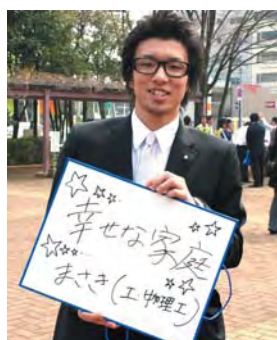 幸せな家庭
まさき(工・物理工)